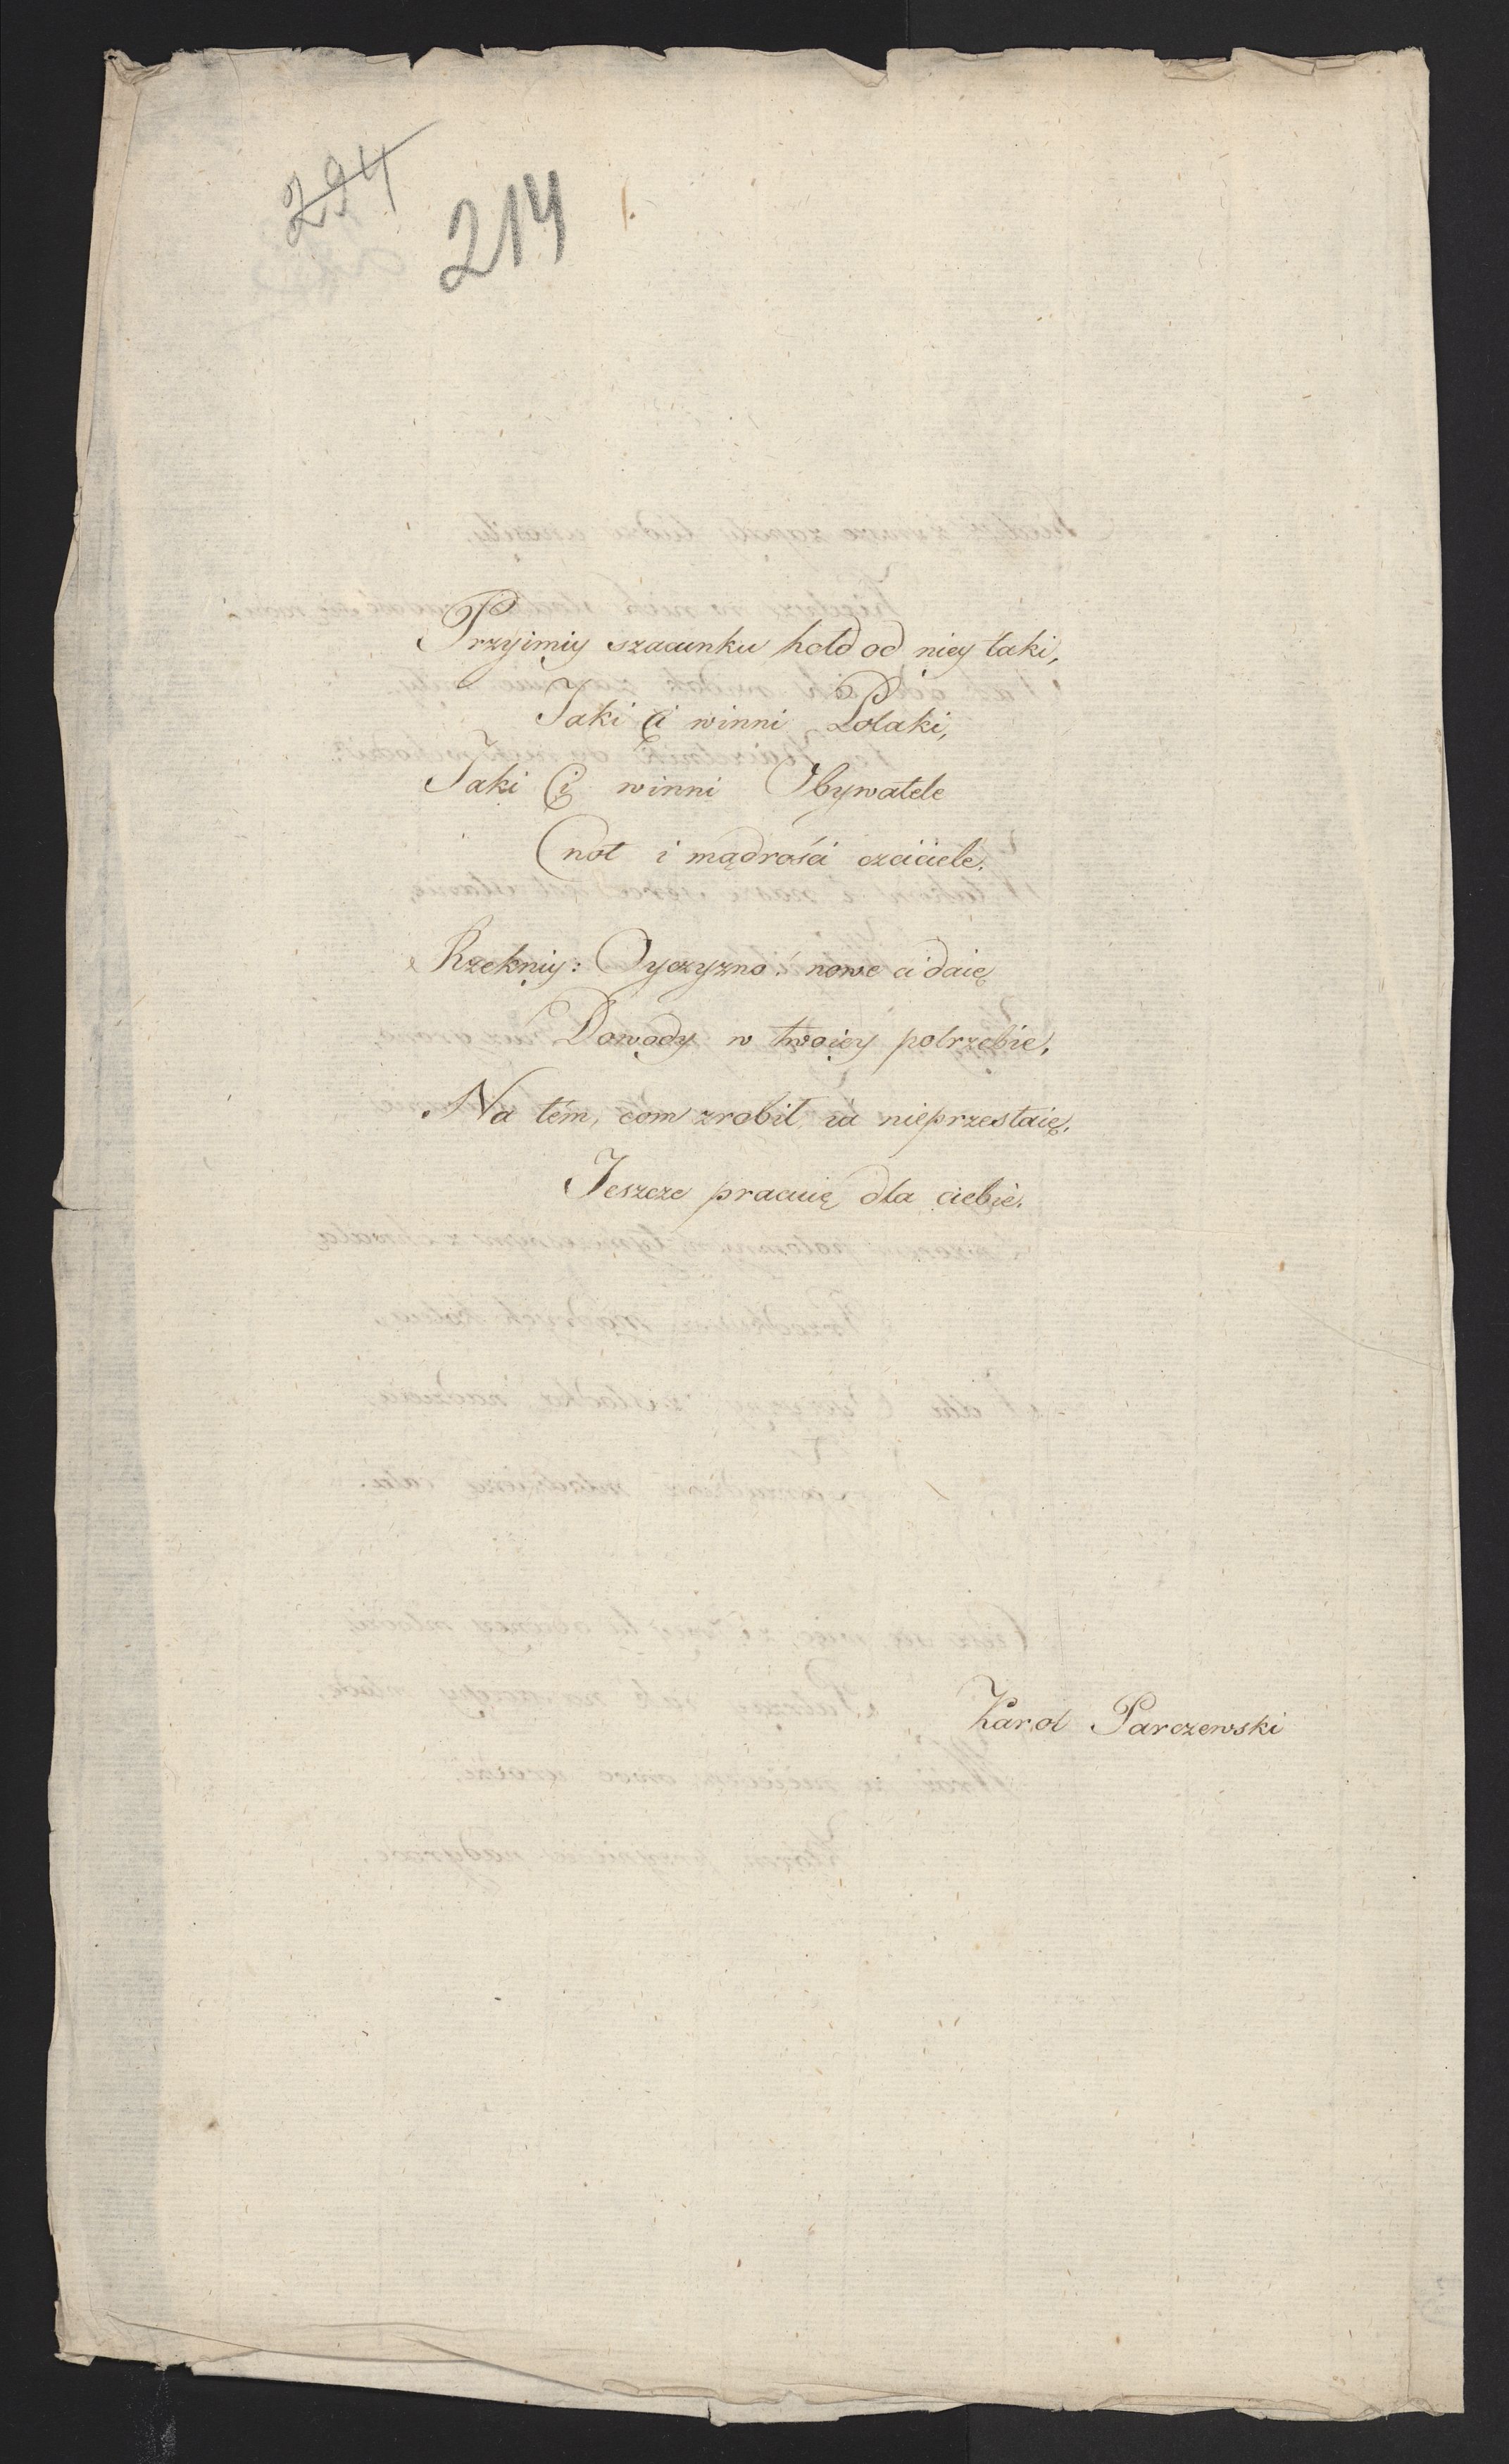 294
214
Przyimiy szacunku hołd od niey taki,
Jaki Ci winni Polaki,
Jaki Ci winni Obywatele
Cnot i mądrości czciciele.
Rzekniy: Oyczyzno! nowe ci daię
Dowody w twoiey potrzebie,
Na tém, com zrobił, ia nieprzestaię,
Jeszcze pracuię dla ciebie.
Karol Parczewski